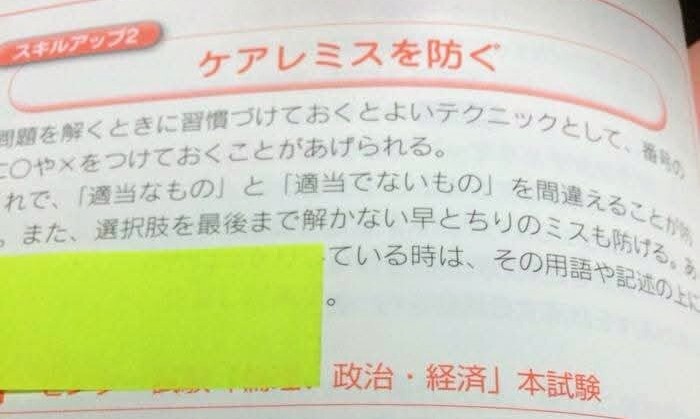 スキルアップ2
ケアレミスを防ぐ
問題を解くときに習慣づけておくとよいテクニックとして、番号の
に○や×をつけておくことがあげられる。
れで、「適当なもの」と「適当でないもの」を間違えることが
。また、選択肢を最後まで解かない早とちりのミスも防げる。あ
ている時は、その用語や記述の上に
。
試験「倫理、政治・経済」本試験